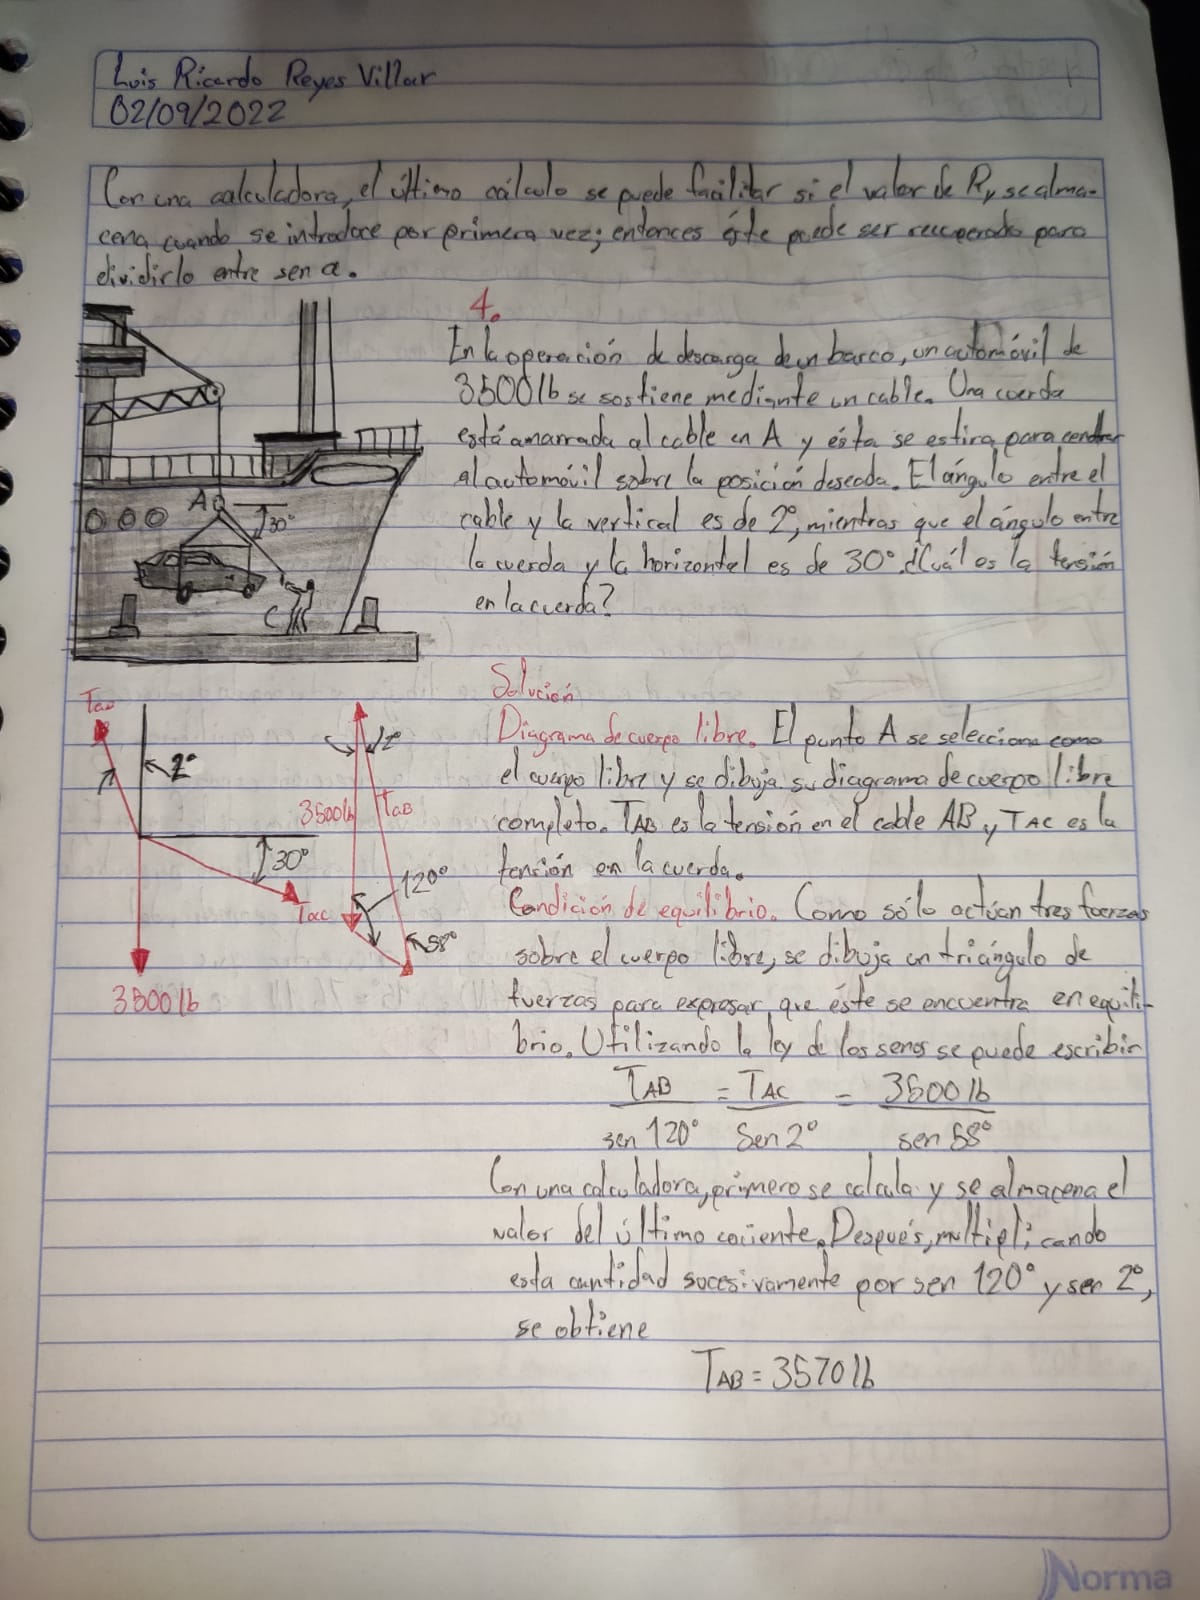 Luis Ricardo Reyes Villar
02/09/2022
Con una calculadora, el último cálculo se puede facilitar si el valor de Ry se alma-
cena cuando se introduce por primera vez; entonces éste puede ser recuperado para
dividirlo entre sen a.
4.
En la operación de descarga de un barco, un automóvil de
3500 lb se sostiene mediante un cable. Una cuerda
está amarrada al cable en A y ésta se estira para centrar
al automóvil sobre la posición deseada. El ángulo entre el
cable y la vertical es de 2°, mientras que el ángulo entre
la cuerda y la horizontal es de 30°. ¿Cuál es la tensión
en la cuerda?
A
30°
C
Solución
Diagrama de cuerpo libre. El punto A se selecciona como
el cuerpo libre y se dibuja su diagrama de cuerpo libre
completo. TAB es la tensión en el cable AB y TAC es la
tensión en la cuerda.
Condición de equilibrio. Como sólo actúan tres fuerzas
sobre el cuerpo libre, se dibuja un triángulo de
fuerzas para expresar que éste se encuentra en equili-
brio. Utilizando la ley de los senos se puede escribir
2°
30°
Tac
3500 lb
2°
3500lb
TAB
120°
58°
TAB = TAC = 3500 lb
sen 120° Sen 2° sen 58°
Con una calculadora, primero se calcula y se almacena el
valor del último cociente. Después, multiplicando
esta cantidad sucesivamente por sen 120° y sen 2°,
se obtiene
TAB = 3570 lb
Norma